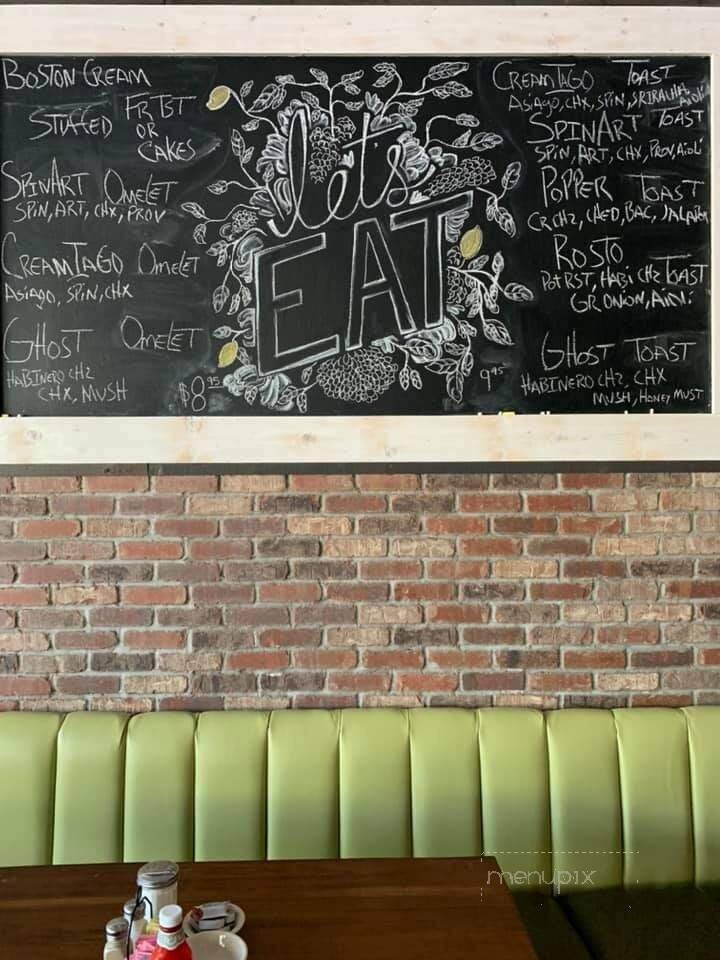 BOSTON CREAM
STUFFED FR TST
OR
CAKES
SPINART OMELET
SPIN, ART, CHX, PROV
CREAMTAGO OMELET
ASIAGO, SPIN, CHX
GHOST OMELET
HABINERO CHZ
CHX, MUSH
$8.95
let's
EAT
9.45
CREAMTAGO TOAST
ASIAGO, CHX, SPIN, SRIRACHA AIOLI
SPINART TOAST
SPIN, ART, CHX, PROV, AIOLI
POPPER TOAST
CR CHZ, CHED, BAC, JALAPEN
ROSTO TOAST
POT RST, HABI CHZ
GR ONION, AIOLI
GHOST TOAST
HABINERO CHZ, CHX
MUSH, HONEY MUST
menupix